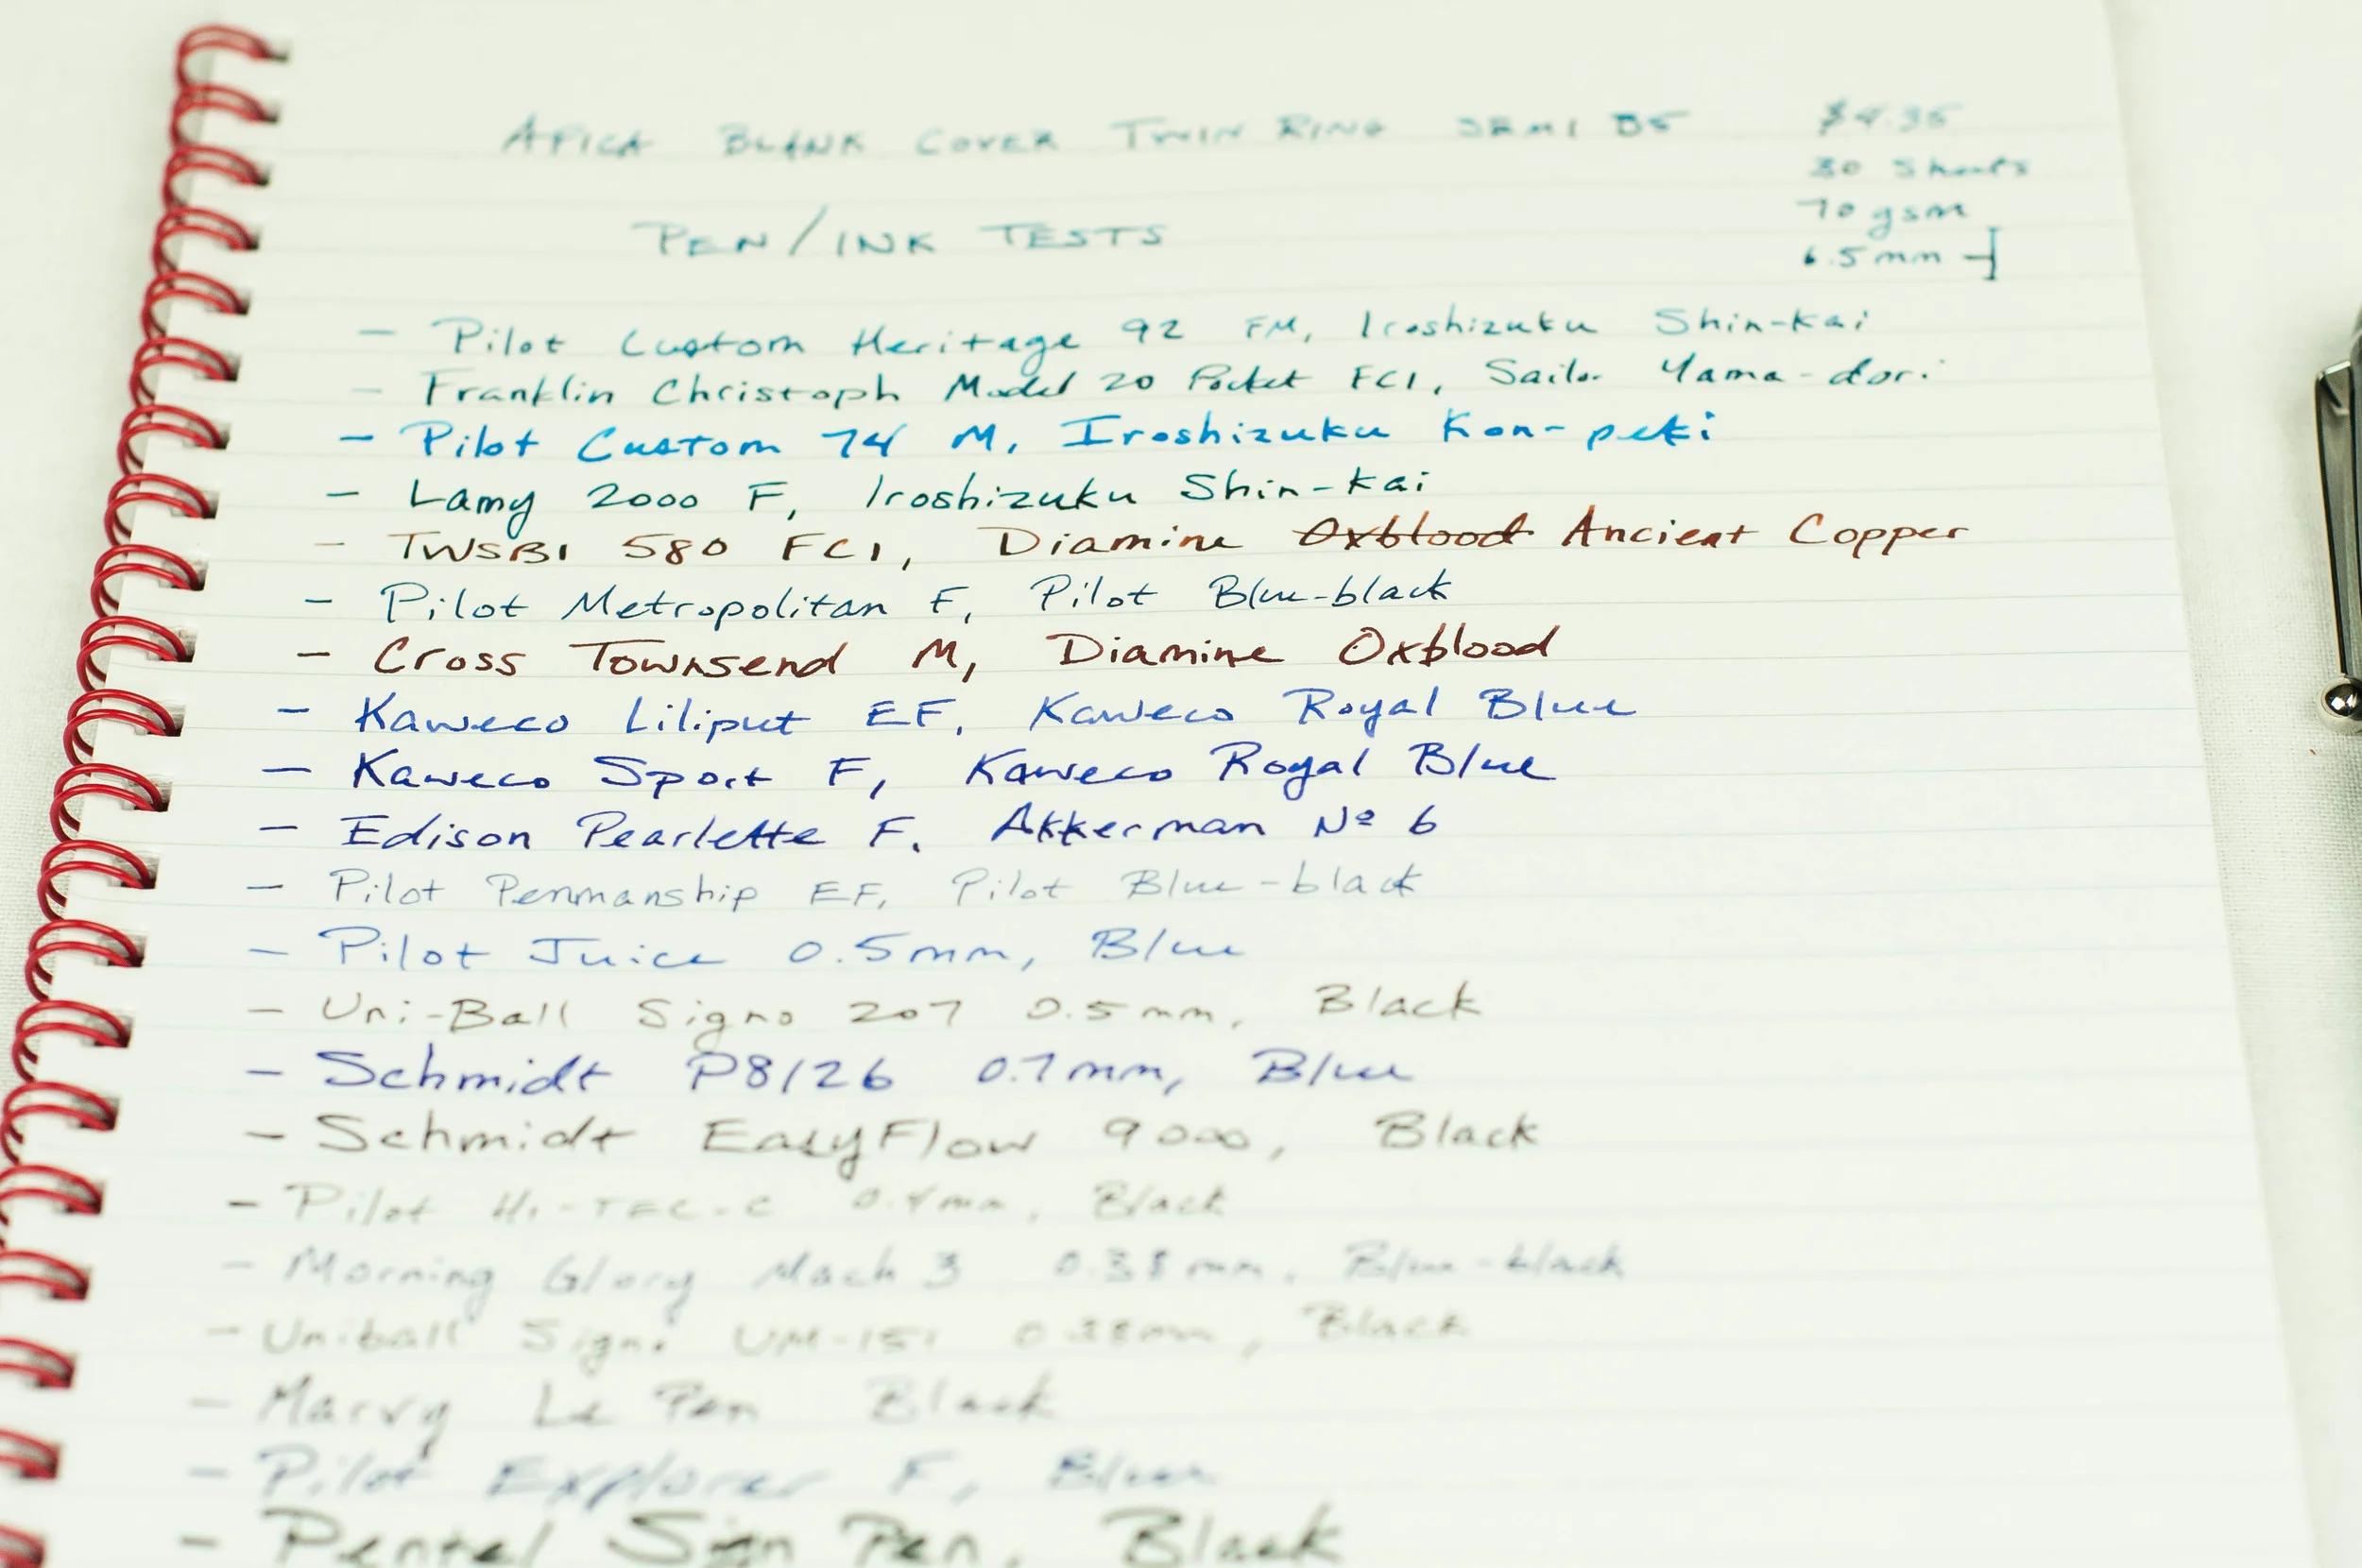 APICA BLANK COVER TWIN RING SEMI B5 $4.35
30 Sheets
70 gsm
6.5mm
PEN/INK TESTS
- Pilot Custom Heritage 92 FM, Iroshizuku Shin-kai
- Franklin Christoph Model 20 Pocket FCI, Sailor Yama-dori
- Pilot Custom 74 M, Iroshizuku Kon-peki
- Lamy 2000 F, Iroshizuku Shin-kai
- TWSBI 580 FCI, Diamine Oxblood Ancient Copper
- Pilot Metropolitan F, Pilot Blue-black
- Cross Townsend M, Diamine Oxblood
- Kaweco Liliput EF, Kaweco Royal Blue
- Kaweco Sport F, Kaweco Royal Blue
- Edison Pearlette F, Akkerman Nº 6
- Pilot Penmanship EF, Pilot Blue-black
- Pilot Juice 0.5mm, Blue
- Uni-Ball Signo 207 0.5mm, Black
- Schmidt P8126 0.7mm, Blue
- Schmidt EasyFlow 9000, Black
- Pilot Hi-TEC-C 0.4mm, Black
- Morning Glory Mach 3 0.38mm, Blue-black
- Uniball Signo UM-151 0.38mm, Black
- Marvy Le Pen Black
- Pilot Explorer F, Blue
- Pentel Sign Pen, Black